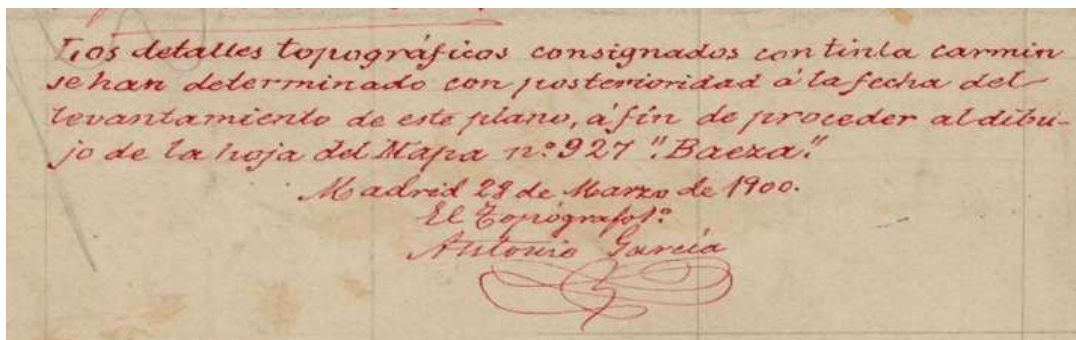 Los detalles topográficos consignados con tinta carmin
se han determinado con posterioridad á la fecha del
levantamiento de este plano, á fin de proceder al dibu-
jo de la hoja del Mapa nº 927 "Baeza."
Madrid 28 de Marzo de 1900.
El Topógrafo 1º
Antonio García